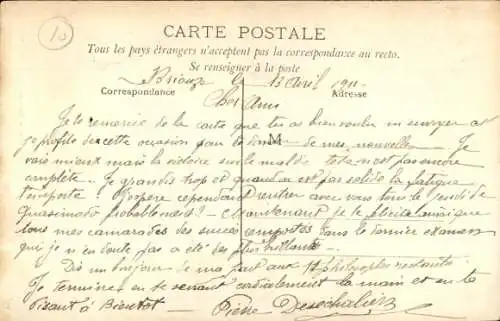 10
CARTE POSTALE
Tous les pays étrangers n'acceptent pas la correspondance au recto.
Se renseigner à la poste
Briouze le 13 Avril 191
Correspondance Adresse
Cher Ami
Je te remercie de la carte que tu as bien voulu m'envoyer et
je profite de cette occasion pour te donner M de mes nouvelles. Je
vais mieux mais la victoire sur le mal de tete n'est pas encore
complète. Je grandis trop et quand on est pas solide la fatigue
l'emporte. J'espère cependant rentrer avec vous tous le jeudi de
Quasimodo probablement! Maintenant je te félicite ainsi que
tous mes camarades des succès remportés dans le dernier examen
qui je n'en doute pas a été des plus brillants.
Dis un bonjour de ma part aux photographes
Je termine en te serrant cordialement la main et en te
disant à Bientot. Pierre